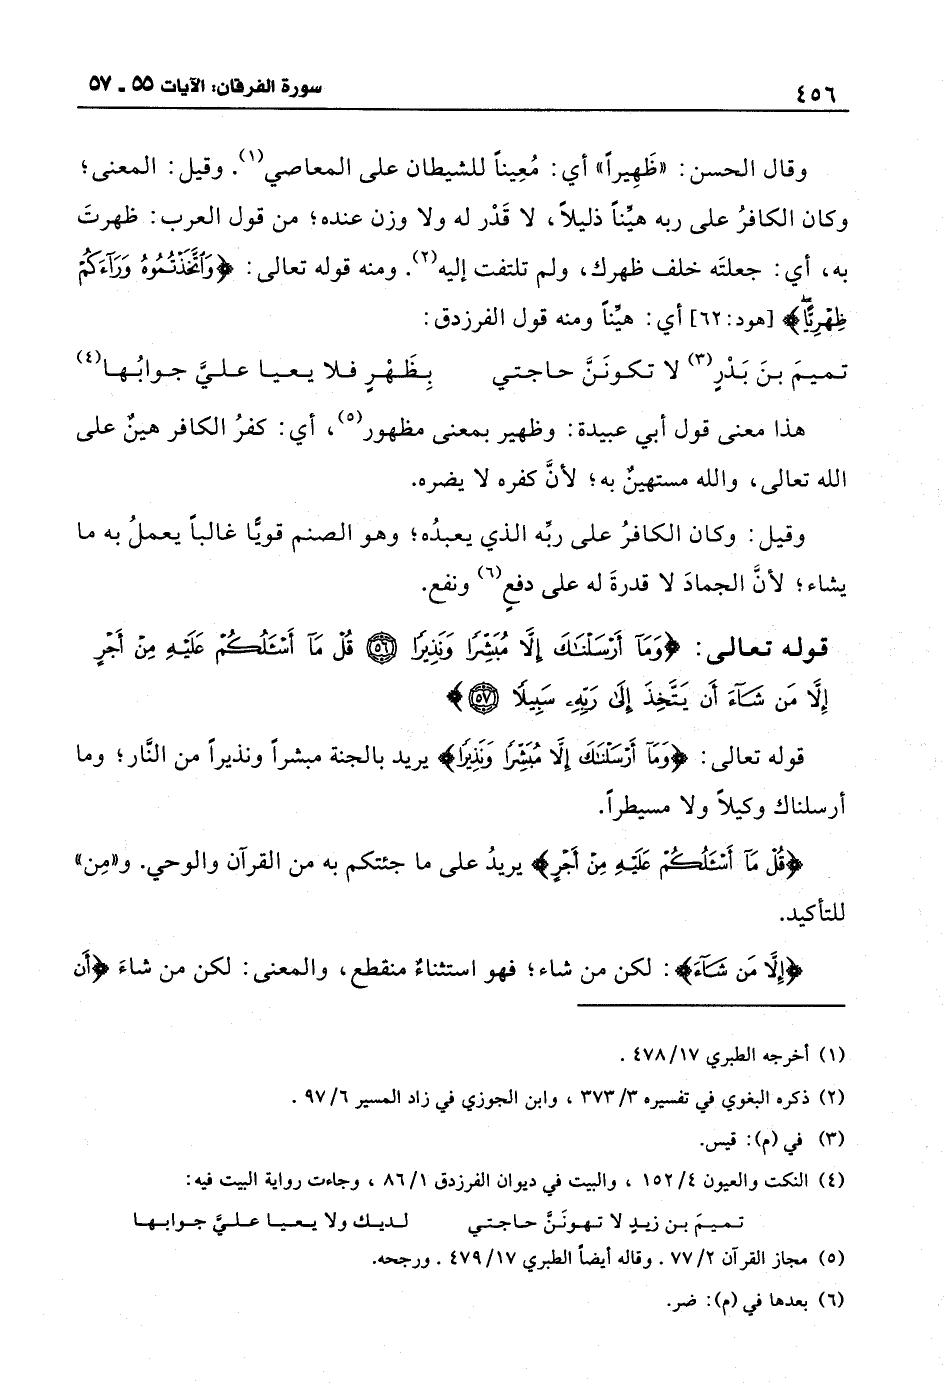 ٤٥٦ سورة الفرقان: الآيات ٥٥ ـ ٥٧
وقال الحسن: «ظَهِيراً» أي: مُعِيناً للشيطان على المعاصي(١). وقيل: المعنى؛
وكان الكافرُ على ربه هيِّناً ذليلاً، لا قَدْر له ولا وزن عنده؛ من قول العرب: ظهرتَ
به، أي: جعلتَه خلف ظهرك، ولم تلتفت إليه(٢). ومنه قوله تعالى: ﴿وَٱتَّخَذْتُمُوهُ وَرَآءَكُمْ
ظِهْرِيًّاۖ﴾ [هود:٦٢] أي: هيِّناً ومنه قول الفرزدق:
تميمَ بنَ بَدْرٍ(٣) لا تكونَنَّ حاجتي بِظَهْرٍ فلا يعيا عليَّ جوابُها(٤)
هذا معنى قول أبي عبيدة: وظهير بمعنى مظهور(٥)، أي: كفرُ الكافر هينٌ على
الله تعالى، والله مستهينٌ به؛ لأنَّ كفره لا يضره.
وقيل: وكان الكافرُ على ربِّه الذي يعبدُه؛ وهو الصنم قويًّا غالباً يعملُ به ما
يشاء؛ لأنَّ الجمادَ لا قدرةَ له على دفعٍ(٦) ونفع.
قوله تعالى: ﴿وَمَآ أَرْسَلْنَٰكَ إِلَّا مُبَشِّرًا وَنَذِيرًا ۝٥٦ قُلْ مَآ أَسْـَٔلُكُمْ عَلَيْهِ مِنْ أَجْرٍ
إِلَّا مَن شَآءَ أَن يَتَّخِذَ إِلَىٰ رَبِّهِۦ سَبِيلًا ۝٥٧﴾
قوله تعالى: ﴿وَمَآ أَرْسَلْنَٰكَ إِلَّا مُبَشِّرًا وَنَذِيرًا﴾ يريد بالجنة مبشراً ونذيراً من النَّار؛ وما
أرسلناك وكيلاً ولا مسيطراً.
﴿قُلْ مَآ أَسْـَٔلُكُمْ عَلَيْهِ مِنْ أَجْرٍ﴾ يريدُ على ما جئتكم به من القرآن والوحي. و«مِن»
للتأكيد.
﴿إِلَّا مَن شَآءَ﴾: لكن من شاء؛ فهو استثناءٌ منقطع، والمعنى: لكن من شاءَ ﴿أَن
(١) أخرجه الطبري ١٧/ ٤٧٨ .
(٢) ذكره البغوي في تفسيره ٣/ ٣٧٣ ، وابن الجوزي في زاد المسير ٦/ ٩٧ .
(٣) في (م): قيس.
(٤) النكت والعيون ٤/ ١٥٢ ، والبيت في ديوان الفرزدق ١/ ٨٦ ، وجاءت رواية البيت فيه:
تميمَ بن زيدٍ لا تهونَنَّ حاجتي لديك ولا يعيا عليَّ جوابها
(٥) مجاز القرآن ٢/ ٧٧ . وقاله أيضاً الطبري ١٧/ ٤٧٩ . ورجحه.
(٦) بعدها في (م): ضر.